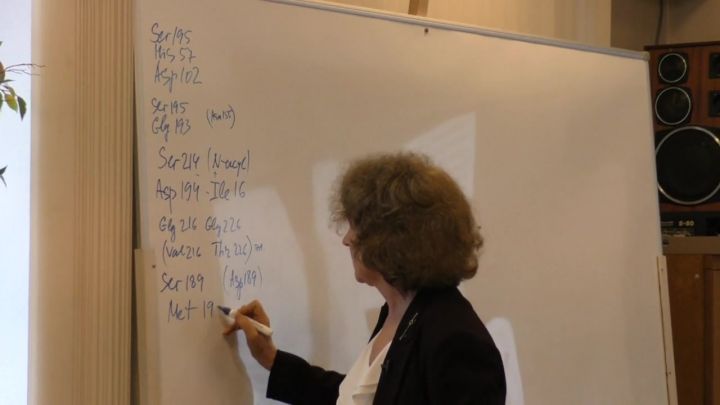 Ser 195
His 57
Asp 102
Ser 195
Gly 193 (Asn 155)
Ser 214 (N-acyl)
Asp 194 - Ile 16
Gly 216 Gly 226
(Val 216 Thr 226)
Ser 189 (Asp 189)
Met 19
S-90